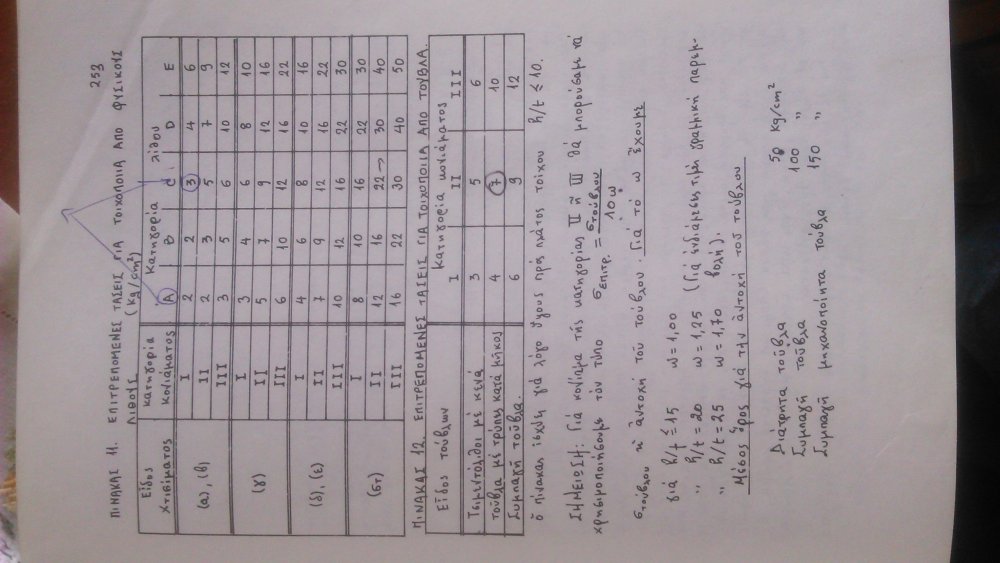 253
ΠΙΝΑΚΑΣ 11. ΕΠΙΤΡΕΠΟΜΕΝΕΣ ΤΑΣΕΙΣ ΓΙΑ ΤΟΙΧΟΠΟΙΙΑ ΑΠΟ ΦΥΣΙΚΟΥΣ
ΛΙΘΟΥΣ (Kg/cm²)
Εἶδος χτισίματος | κατηγορία κονιάματος | Κατηγορία λίθου
A | B | C | D | E
(α), (β) | I | 2 | 2 | 3 | 4 | 6
II | 2 | 3 | 5 | 7 | 9
III | 3 | 5 | 6 | 10 | 12
(γ) | I | 3 | 4 | 6 | 8 | 10
II | 5 | 7 | 9 | 12 | 16
III | 6 | 10 | 12 | 16 | 22
(δ), (ε) | I | 4 | 6 | 8 | 10 | 16
II | 7 | 9 | 12 | 16 | 22
III | 10 | 12 | 16 | 22 | 30
(στ) | I | 8 | 10 | 16 | 22 | 30
II | 12 | 16 | 22 → | 30 | 40
III | 16 | 22 | 30 | 40 | 50
ΠΙΝΑΚΑΣ 12. ΕΠΙΤΡΕΠΟΜΕΝΕΣ ΤΑΣΕΙΣ ΓΙΑ ΤΟΙΧΟΠΟΙΙΑ ΑΠΟ ΤΟΥΒΛΑ.
Εἶδος τούβλων | Κατηγορία κονιάματος
I | II | III
Τσιμεντόλιθοι μέ κενά | 3 | 5 | 6
τούβλα μέ τρύπες κατά μῆκος | 4 | 7 | 10
Συμπαγῆ τούβλα. | 6 | 9 | 12
ὁ πίνακας ἰσχύει γιά λόγο ὕψους πρός πλάτος τοίχου h/t ≤ 10.
ΣΗΜΕΙΩΣΗ: Γιά κονίαμα τῆς κατηγορίας II ἤ III θά μπορούσαμε νά
χρησιμοποιήσουμε τόν τύπο σ επιτρ. = σ τούβλου / 10 ω
σ τούβλου ἡ ἀντοχή τοῦ τούβλου. Γιά τό ω ἔχουμε
γιά h/t ≤ 15 ω = 1,00
" h/t = 20 ω = 1,25 (Γιά ἐνδιάμεσες τιμές γραμμική παρεμ-
" h/t = 25 ω = 1,70 βολή).
Μέσος ὅρος γιά τήν ἀντοχή τοῦ τούβλου
Διάτρητα τοῦβλα 50 Kg/cm²
Συμπαγῆ τοῦβλα 100 "
Συμπαγῆ μηχανοποίητα τοῦβλα 150 "